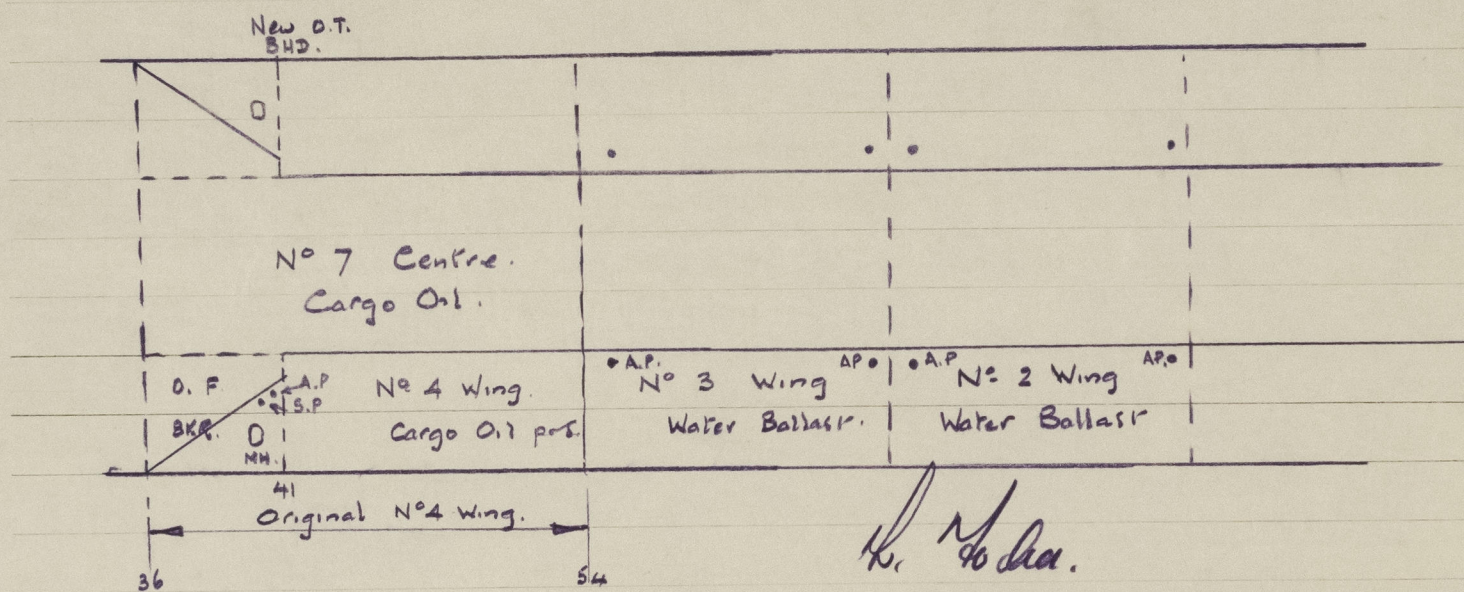 New O.T.
BHD.
Nº 7 Centre.
Cargo Oil.
O. F
BKR.
MH.
A.P
S.P
Nº 4 Wing.
Cargo Oil pos.
A.P.
Nº 3 Wing
Water Ballast.
AP
A.P
Nº 2 Wing
Water Ballast
AP.
41
Original Nº4 Wing.
36
54